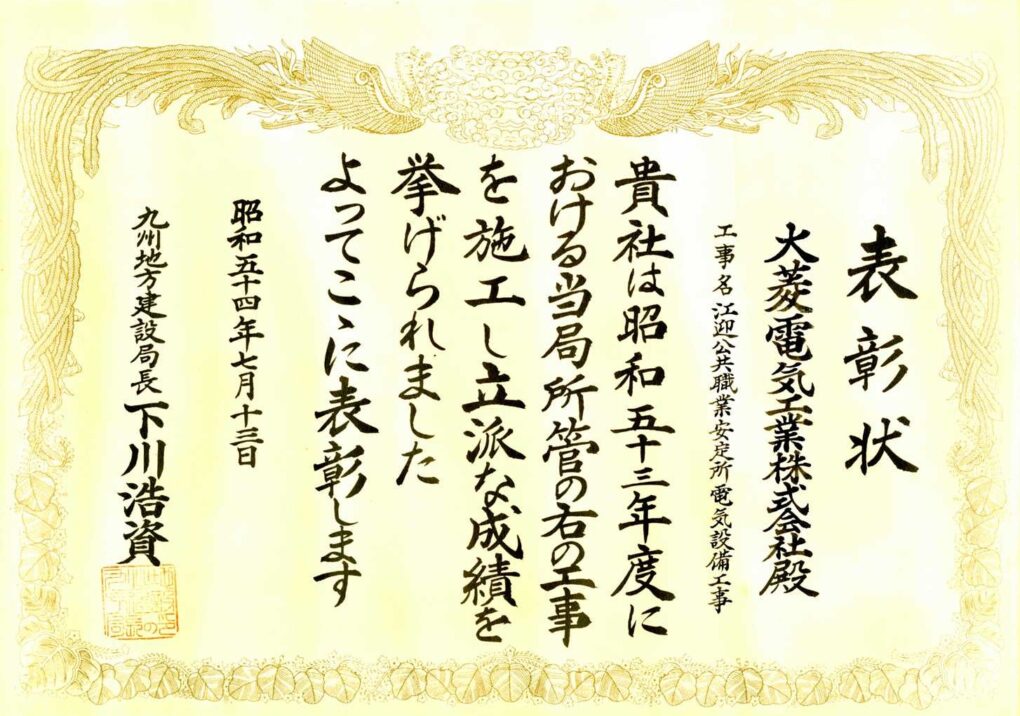 表彰状
大菱電気工業株式会社殿
工事名 江迎公共職業安定所電気設備工事
貴社は昭和五十三年度に
おける当局所管の右の工事
を施工し立派な成績を
挙げられました
よってこゝに表彰します
昭和五十四年七月十三日
九州地方建設局長 下川浩資